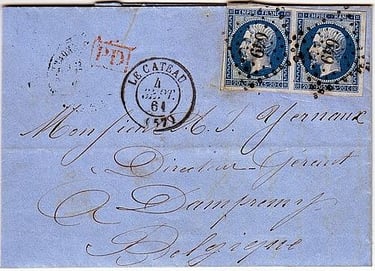 PD
EMPIRE FRANC EMPIRE FRANC
LE CATEAU
4
SEPT.
61
(57)
20 C 20 C
Monsieur A. J. Yernaux
Directeur-Gérant
à Dampremy
Belgique